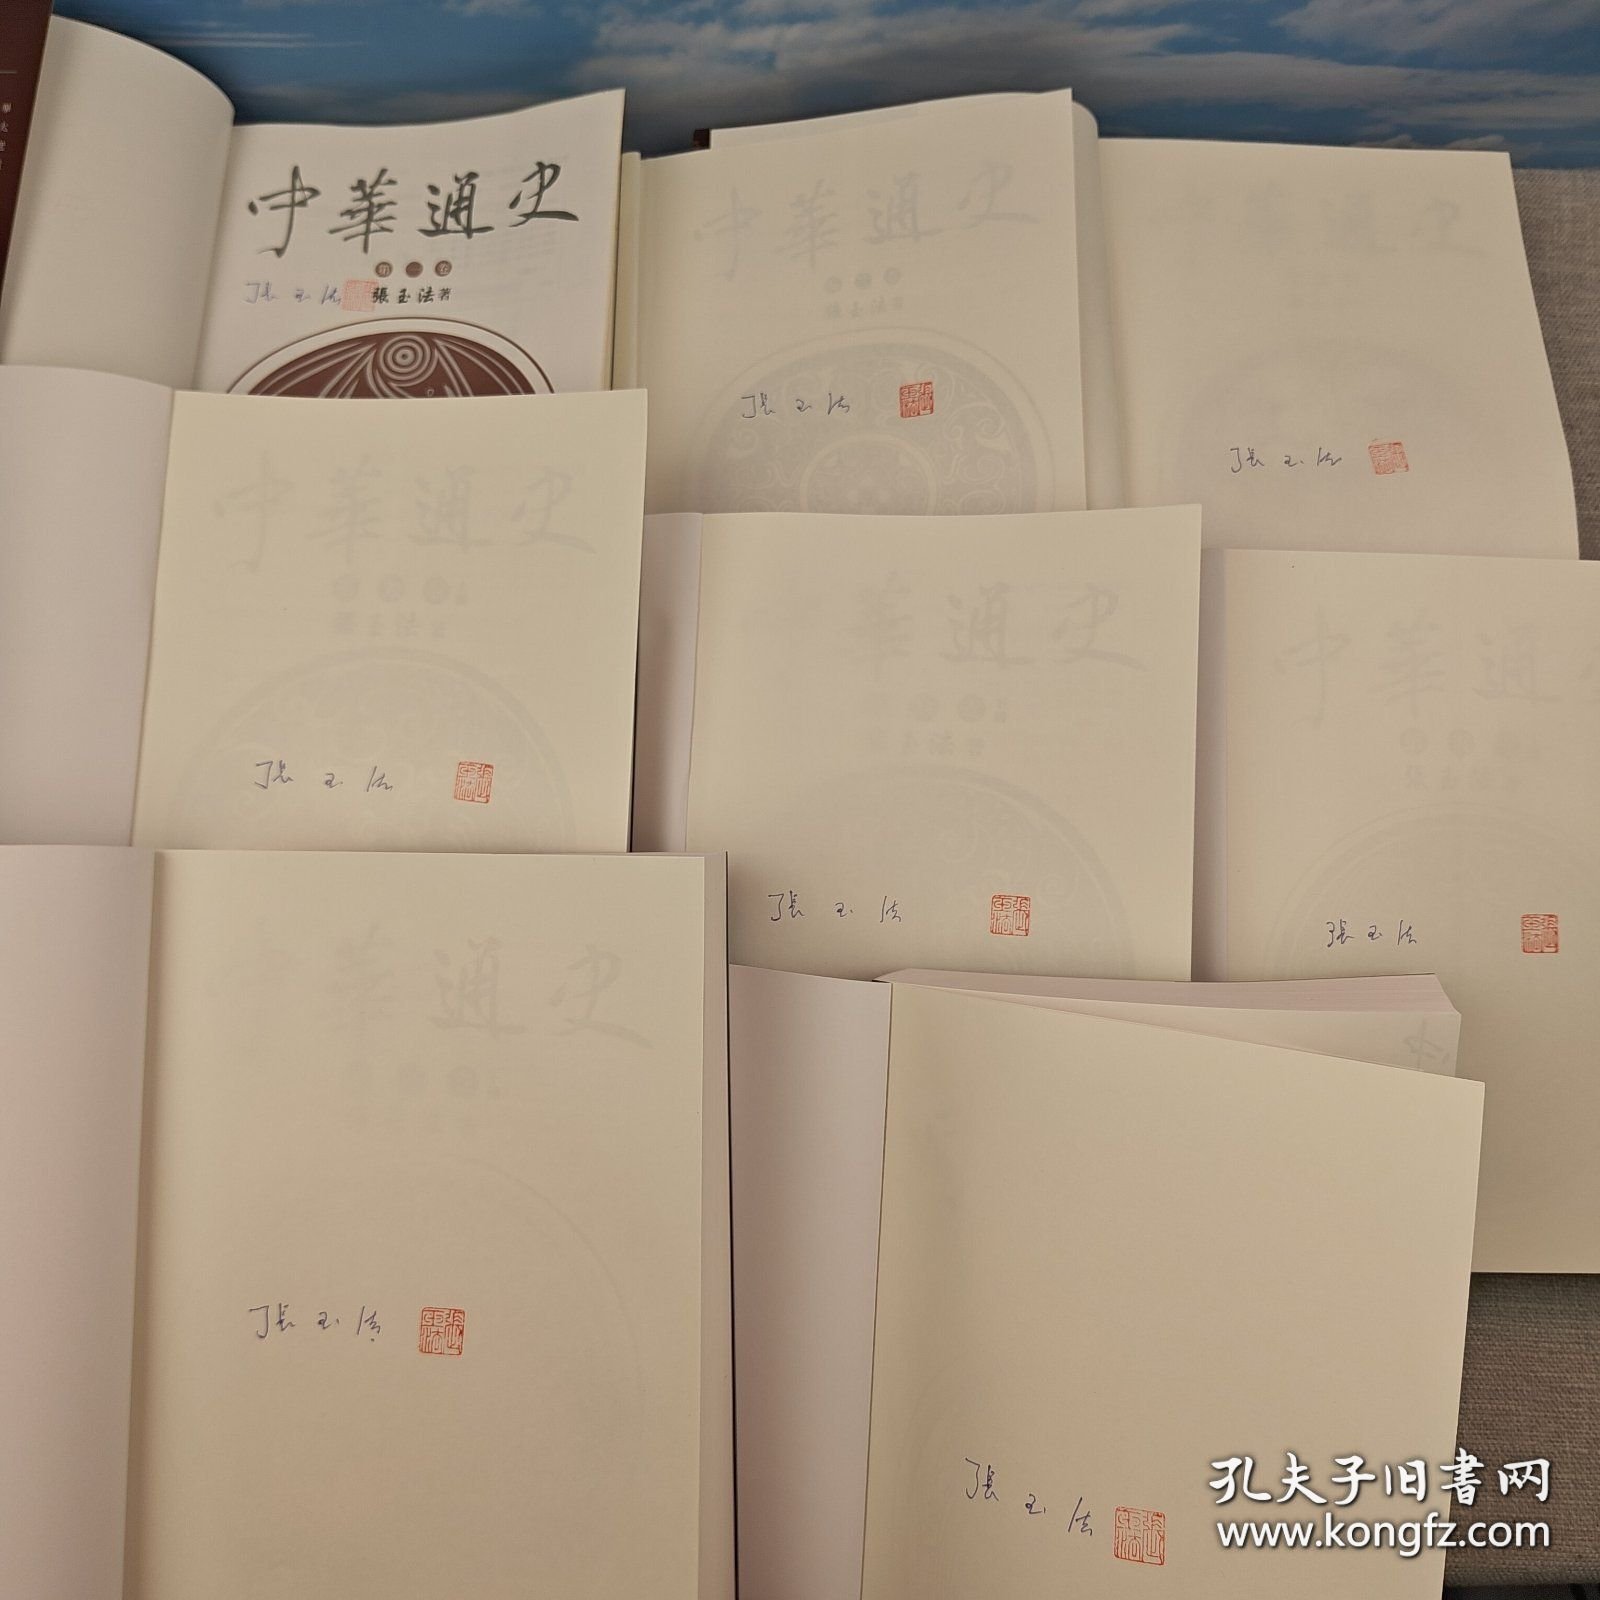 中華通史
第一卷
張玉法 張玉法著
中華通史
張玉法著
張玉法
張玉法
中華通史
張玉法
華通史
張玉法
中華通史
張玉法
張玉法
中華通史
張玉法
張玉法
孔夫子旧書网
www.kongfz.com